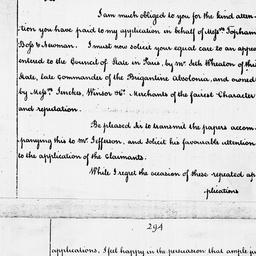 I am much obliged to you for the kind atten-
tion you have paid to my application in behalf of Messrs. Topham
Ross & Newman. I must now solicit your equal care to an appeal
entered to the Council of State in Paris, by Mr. Seth Wheaton of this
State, late Commander of the Brigantine Abolonia, and owned
by Messrs. Jenckes, Winsor & Co. Merchants of the fairest Character
and reputation.
Be pleased Sir to transmit the papers accom-
panying this to Mr. Jefferson, and solicit his favourable attention
to the application of the Claimants.
While I regret the occasion of these repeated ap-
plications
294
applications, I feel happy in the persuasion that ample jus